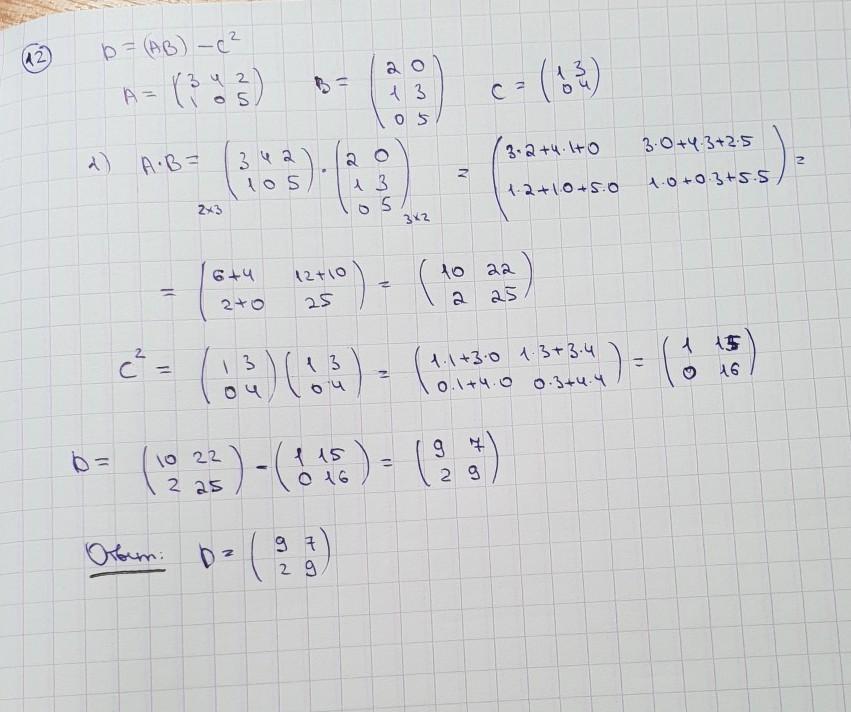 12 D = (AB) - C²
A = (3 4 2
1 0 5) B = (2 0
1 3
0 5) C = (1 3
0 4)
1) A·B = (3 4 2
1 0 5) 2x3 · (2 0
1 3
0 5) 3x2 = (3·2+4·1+0 3·0+4·3+2·5
1·2+1·0+5·0 1·0+0·3+5·5) =
= (6+4 12+10
2+0 25) = (10 22
2 25)
C² = (1 3
0 4) (1 3
0 4) = (1·1+3·0 1·3+3·4
0·1+4·0 0·3+4·4) = (1 15
0 16)
D = (10 22
2 25) - (1 15
0 16) = (9 7
2 9)
Ответ: D = (9 7
2 9)